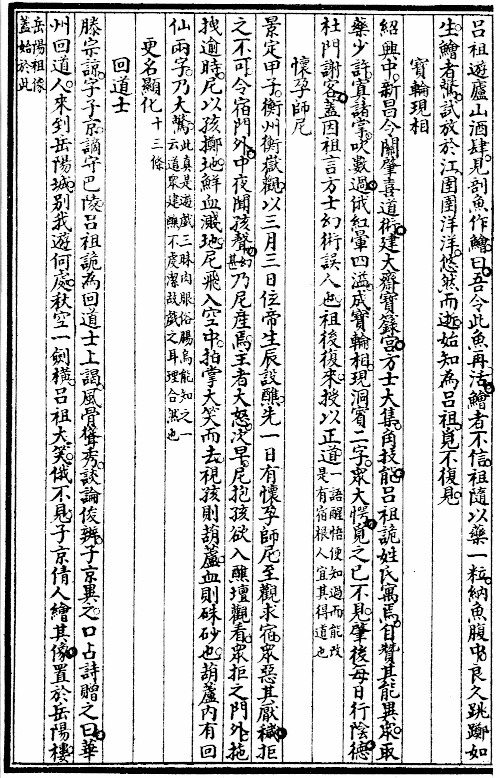 呂祖遊廬山酒肆見剖魚作鱠曰吾令此魚再活鱠者不信祖隨以藥一粒納魚腹中良久跳躑如
生鱠者驚試放於江圉圉洋洋悠然而逝始知為呂祖覓不復見
寶輪現相
紹興中新昌令關肇喜道術建大齋寶籙宮方士大集角技能呂祖詭姓氏寓焉日贊其能異眾取
藥少許寘諸掌吹數過俄紅暈四溢成寶輪相現洞賓二字眾大愕覓之已不見肇後每日行陰德
杜門謝客蓋因祖言方士幻術誤人也祖後復來授以正道一語醒悟便知過而能改
是有宿根人宜其得道也
懷孕師尼
景定甲子衡州衡嶽觀以三月三日位帝生辰設醮先一日有懷孕師尼至觀求宿眾惡其厭穢拒
之不可令宿門外中夜聞孩聲甚幼乃尼產焉王者大怒次早尼抱孩欲入醮壇觀看眾拒之門外拖
拽逾時尼以孩擲地鮮血濺地尼飛入空中拍掌大笑而去視孩則葫蘆血則硃砂也葫蘆內有回
仙兩字乃大驚此真是遊戲三昧肉眼俗腸烏能知之一
云道眾建醮不虔潔故戲之耳理合然也
更名顯化十三條
回道士
滕宗諒字子京謫守巴陵呂祖詭為回道士上謁風骨聳秀談論俊辨子京異之口占詩贈之曰華
州回道人來到岳陽城別我遊何處秋空一劍橫呂祖大笑俄不見子京倩人繪其像置於岳陽樓
岳陽祖像
蓋始於此